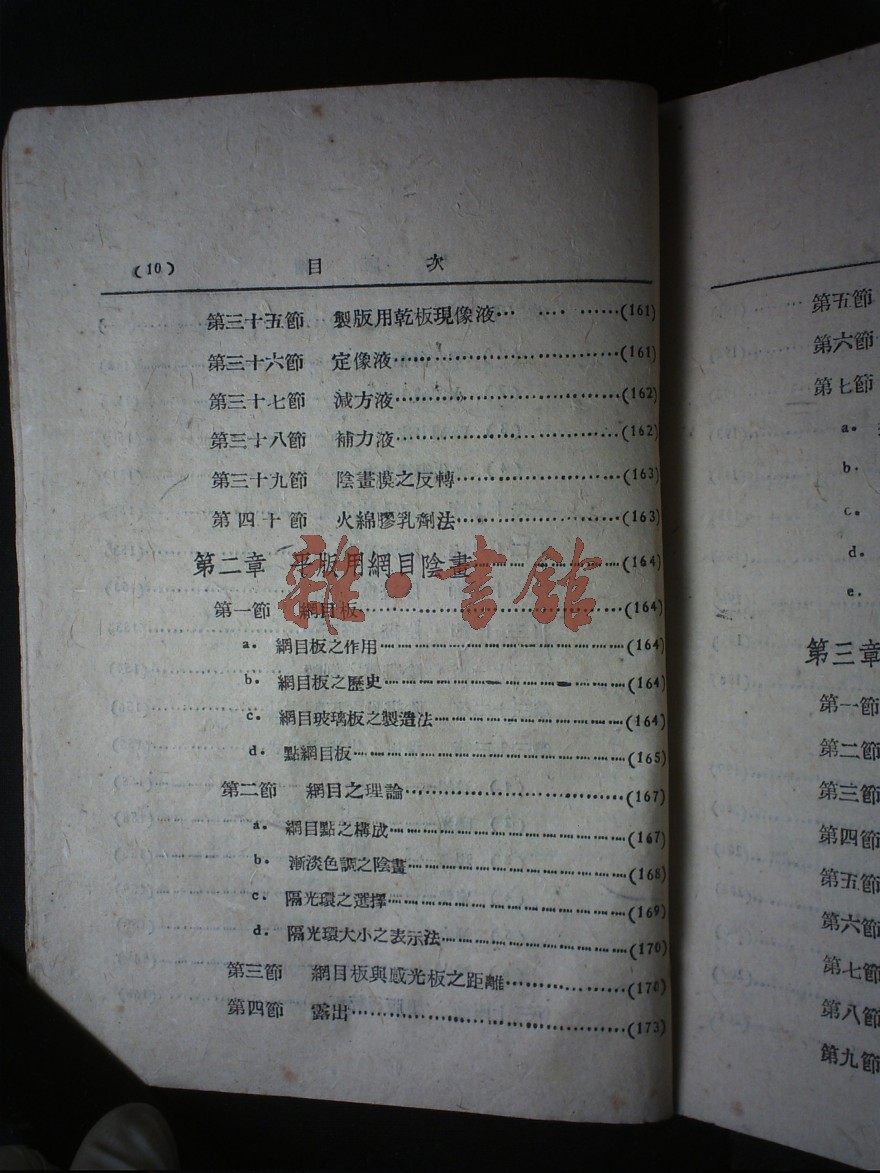 (10) 目 次
第三十五節 製版用乾板現像液……(161)
第三十六節 定像液……(161)
第三十七節 減方液……(162)
第三十八節 補力液……(162)
第三十九節 陰畫膜之反轉……(163)
第四十節 火綿膠乳劑法……(163)
第二章 平版用網目陰畫……(164)
第一節 網目板……(164)
a. 網目板之作用……(164)
b. 網目板之歷史……(164)
c. 網目玻璃板之製造法……(164)
d. 點網目板……(165)
第二節 網目之理論……(167)
a. 網目點之構成……(167)
b. 漸淡色調之陰畫……(168)
c. 隔光環之選擇……(169)
d. 隔光環大小之表示法……(170)
第三節 網目板與感光板之距離……(170)
第四節 露出……(173)
雜·書館
第五節
第六節
第七節
a.
b.
c.
d.
e.
第三章
第一節
第二節
第三節
第四節
第五節
第六節
第七節
第八節
第九節